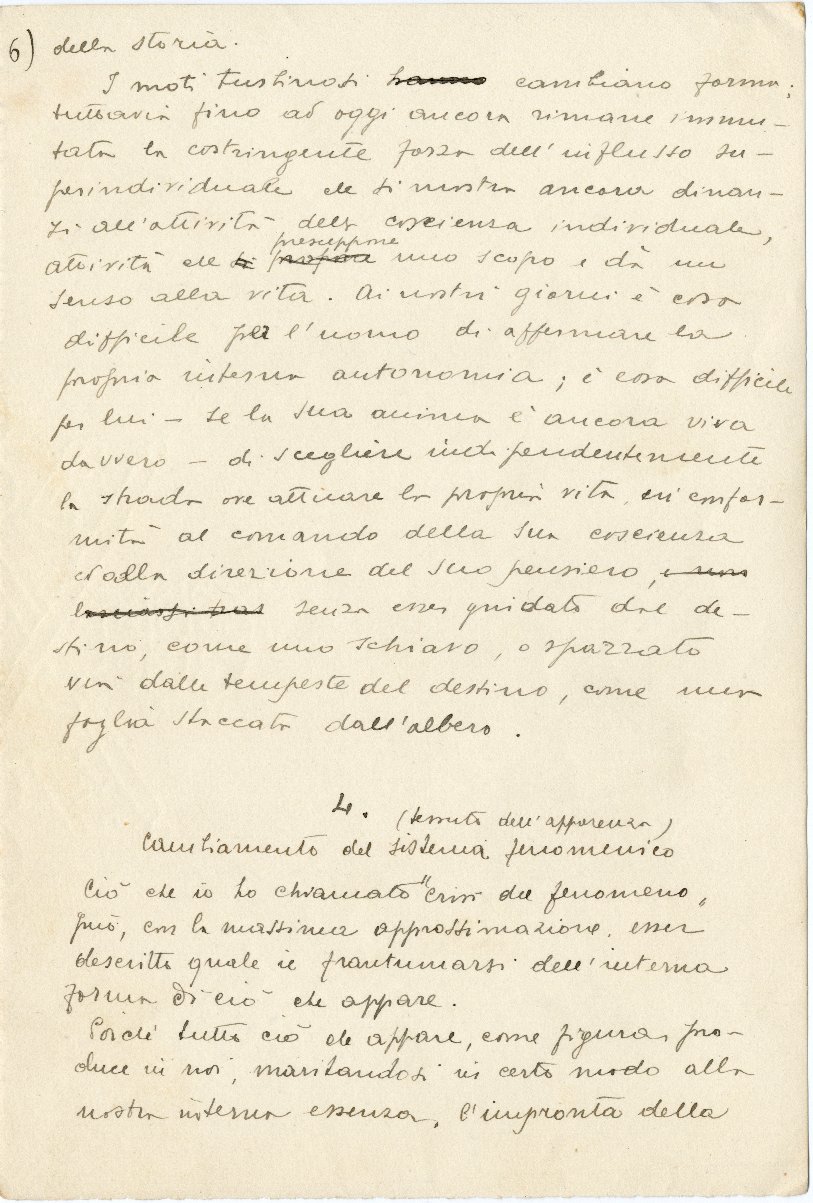 6) della storia.
I moti tustinosi hanno cambiano forma;
tuttavia fino ad oggi ancora rimane immu-
tata la costringente forza dell'influsso su-
perindividuale che si mostra ancora dinan-
zi all'attività della coscienza individuale,
presuppone
attività che si propone uno scopo e dà un
senso alla vita. Ai nostri giorni è cosa
difficile per l'uomo di affermare la
propria interna autonomia; è cosa difficile
per lui – se la sua anima è ancora viva
davvero – di scegliere indipendentemente
la strada ove attuare la propria vita, in confor-
mità al comando della sua coscienza
ed alla direzione del suo pensiero, e non
lasciarsi senza esser guidato dal de-
stino, come uno schiavo, o spazzato
via dalle tempeste del destino, come una
foglia staccata dall'albero.
4.
(tessuto dell'apparenza)
Cambiamento del sistema fenomenico
Ciò che io ho chiamato "crisi del fenomeno"
può, con la massima approssimazione, esser
descritto quale il frantumarsi dell'interna
forma di ciò che appare.
Poiché tutto ciò che appare, come figura, pro-
duce in noi, maritandosi in certo modo alla
nostra interna essenza, l'impronta della